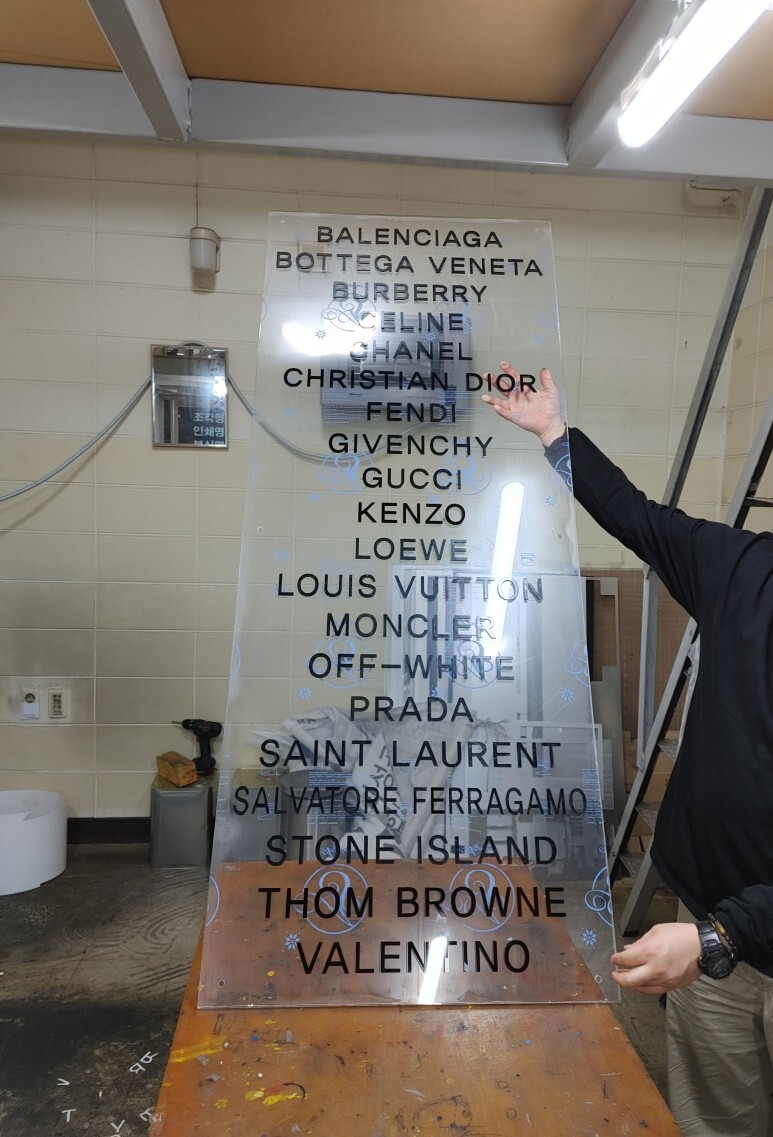 BALENCIAGA
BOTTEGA VENETA
BURBERRY
CELINE
CHANEL
CHRISTIAN DIOR
FENDI
GIVENCHY
GUCCI
KENZO
LOEWE
LOUIS VUITTON
MONCLER
OFF-WHITE
PRADA
SAINT LAURENT
SALVATORE FERRAGAMO
STONE ISLAND
THOM BROWNE
VALENTINO
조각명
인쇄명